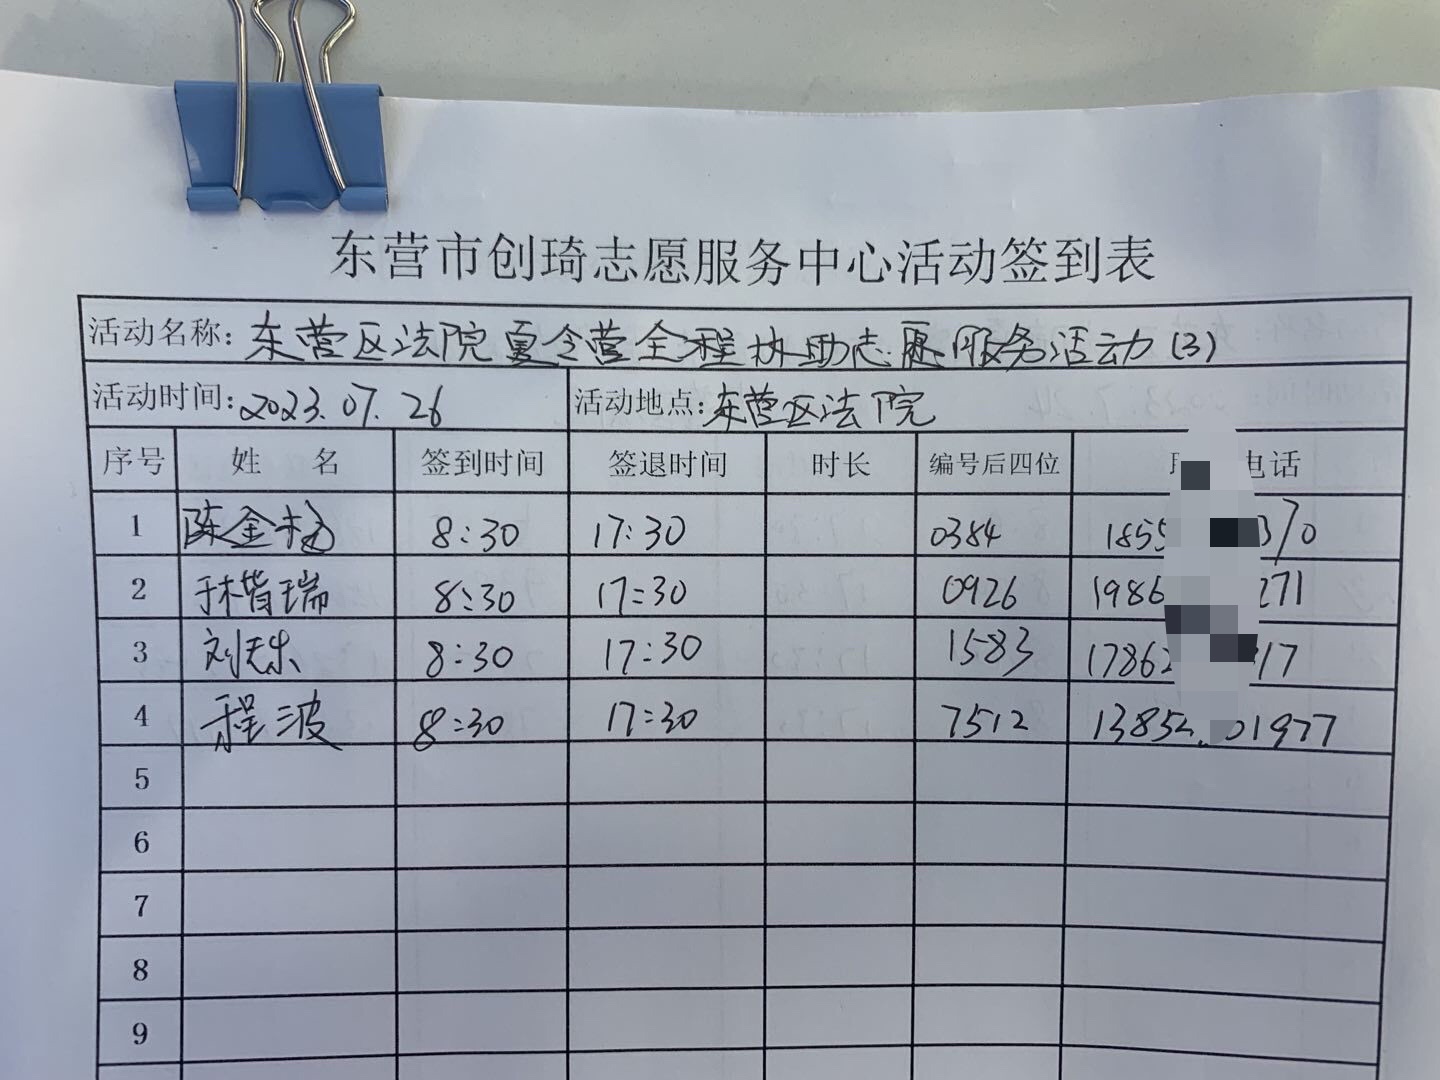 东营市创琦志愿服务中心活动签到表
活动名称: 东营区法院夏令营全程协助志愿服务活动(3)
活动时间: 2023.07.26 活动地点: 东营区法院
序号 姓 名 签到时间 签退时间 时长 编号后四位 电话
1 陈金 8:30 17:30 0384 185 370
2 林 瑞 8:30 17:30 0926 1986 271
3 刘天乐 8:30 17:30 1583 1786 17
4 程波 8:30 17:30 7512 1385 01977
5
6
7
8
9